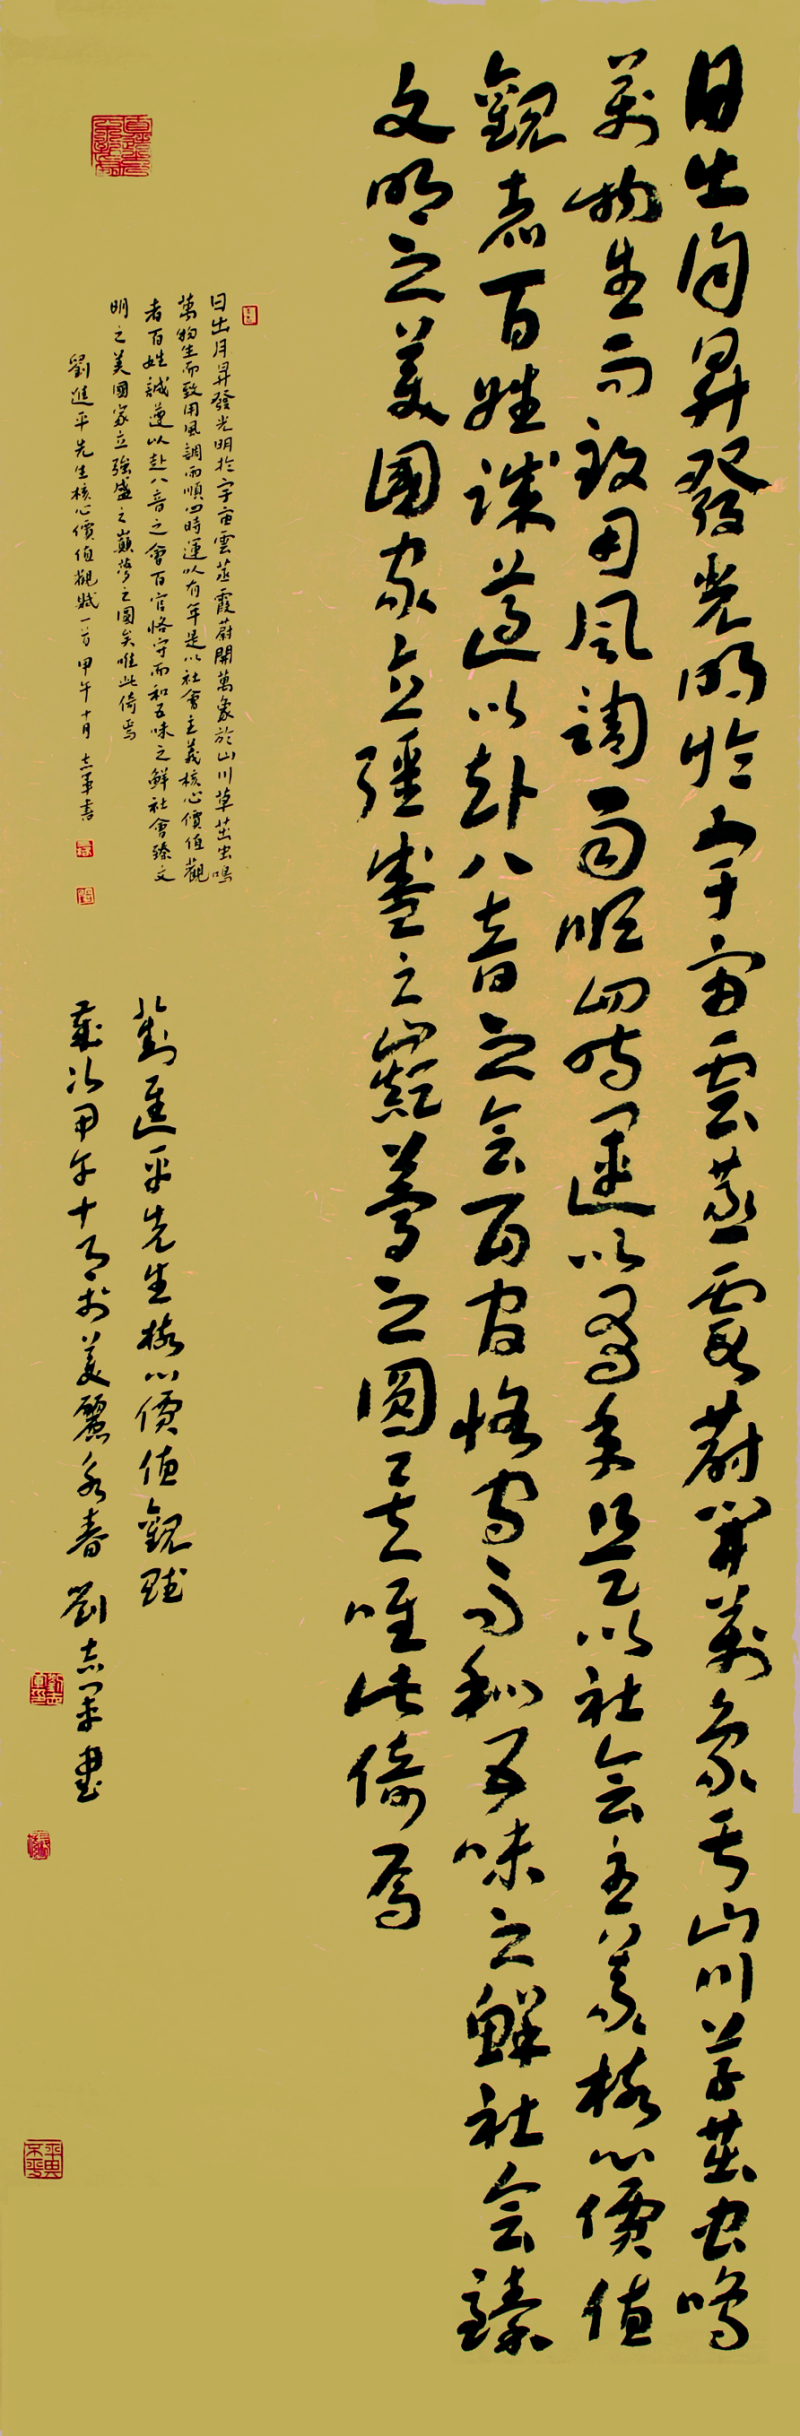 日出月昇發光明於宇宙雲蒸霞蔚開萬象於山川草茁虫鳴
萬物生而致用風調雨順四時運以有年是以社会主義核心價值
觀者百姓誠遵以赴八音之会百官恪守而和五味之鮮社会臻
文明之美国家立强盛之巔夢之圆矣唯此倚焉
日出月昇發光明於宇宙雲蒸霞蔚開萬象於山川草茁虫鳴
萬物生而致用風調雨順四時運以有年是以社會主義核心價值觀
者百姓誠遵以赴八音之會百官恪守而和五味之鮮社會臻文
明之美國家立強盛之巔夢之圓矣唯此倚焉
劉進平先生核心價值觀賦一首甲午十月志軍書
劉進平先生核心價值觀賦
歲次甲午十月於美麗永春劉志军書